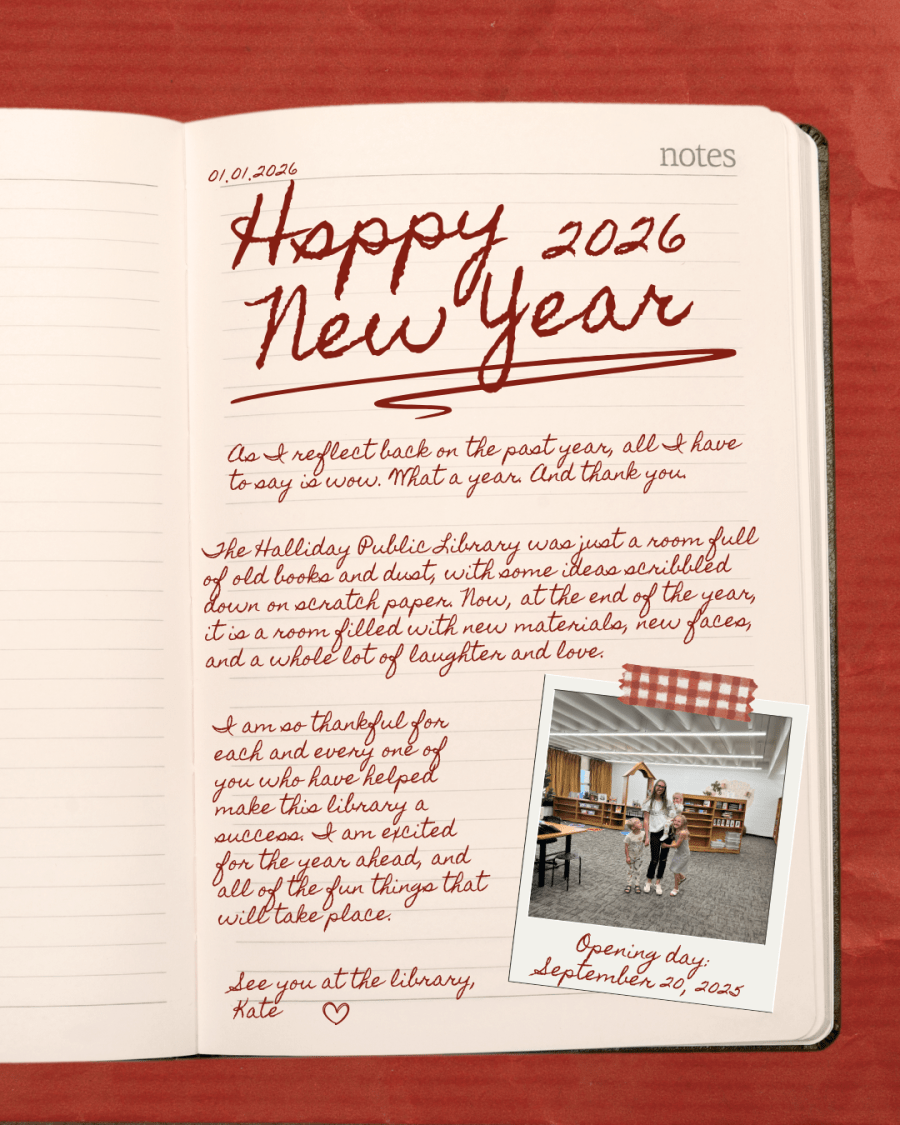 notes
01.01.2026
Happy 2026
New Year
As I reflect back on the past year, all I have
to say is wow. What a year. And thank you.
The Halliday Public Library was just a room full
of old books and dust, with some ideas scribbled
down on scratch paper. Now, at the end of the year,
it is a room filled with new materials, new faces,
and a whole lot of laughter and love.
I am so thankful for
each and every one of
you who have helped
make this library a
success. I am excited
for the year ahead, and
all of the fun things that
will take place.
See you at the library,
Kate
Opening day:
September 20, 2025